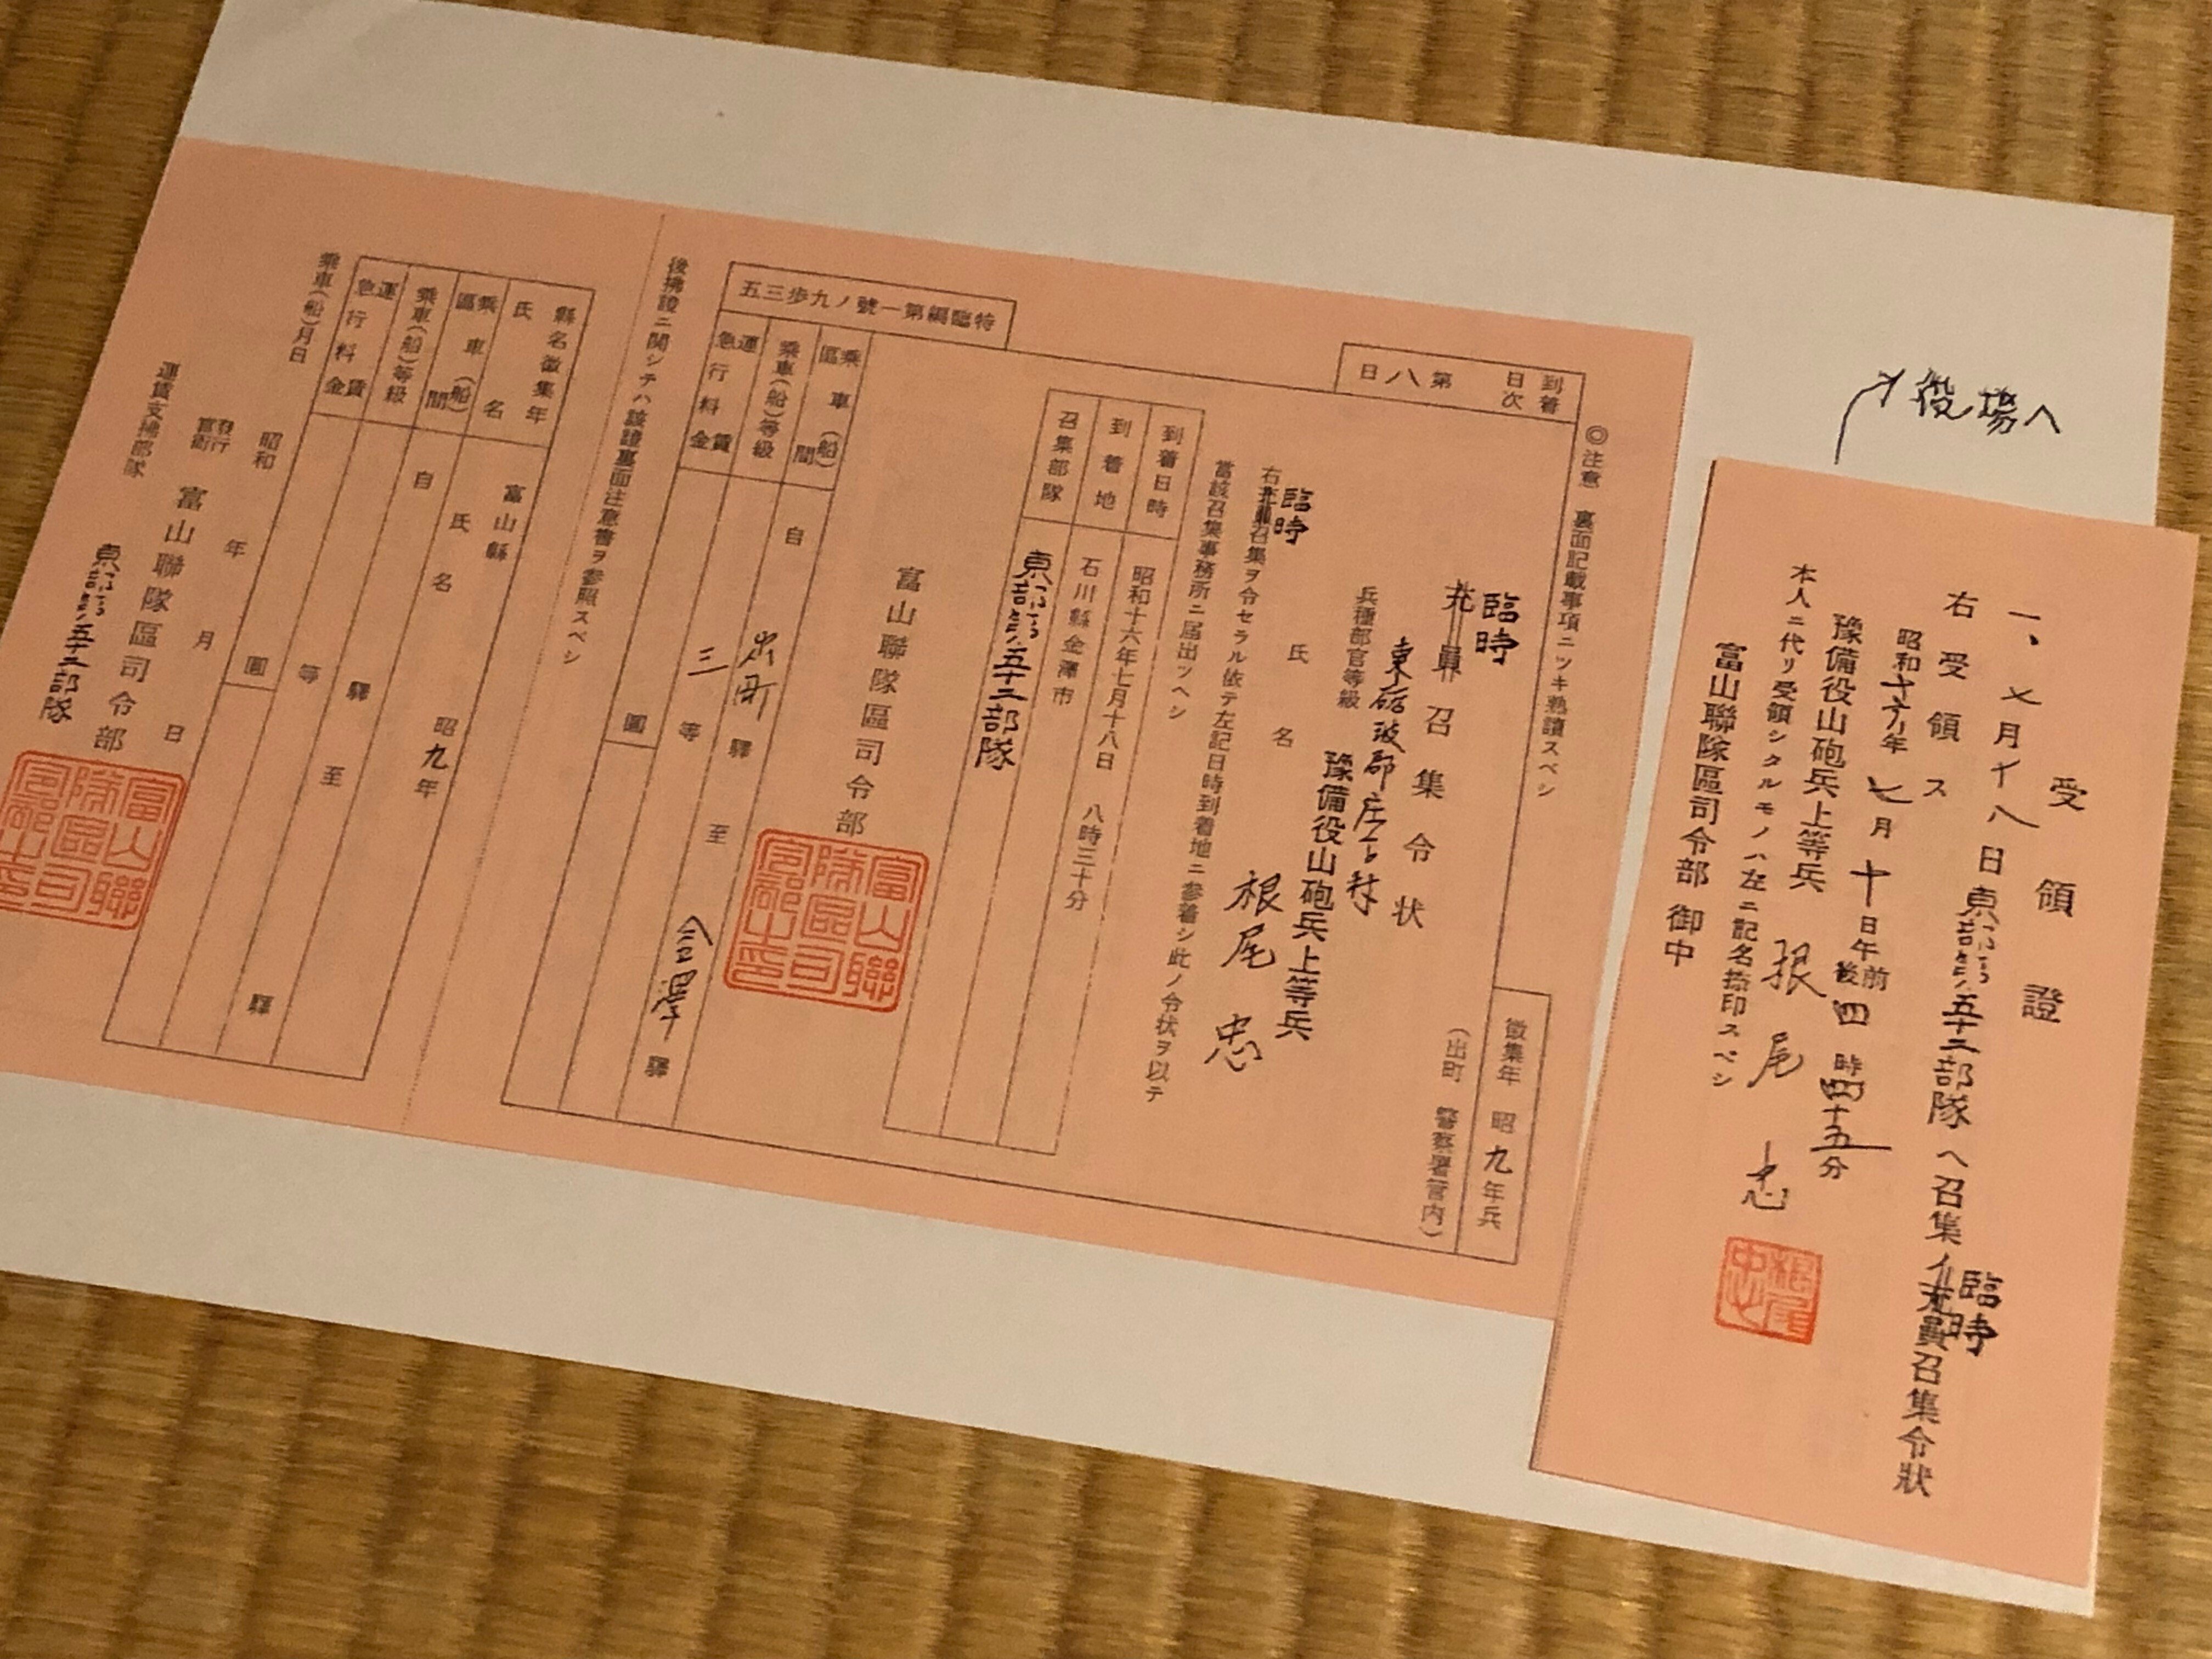 役場へ
受領證
一、七月十八日東部第五十二部隊ヘ召集ノ充員召集令狀
臨時
右受領ス
昭和十六年七月十日午前後四時四十五分
豫備役山砲兵上等兵 根尾忠
本人ニ代リ受領シタルモノハ左ニ記名捺印スベシ
富山聯隊區司令部 御中
根尾忠
◎注意 裏面記載事項ニツキ熟讀スベシ
到着日次 第八日
徵集年 昭九年兵
臨時
充員召集令状
(出町 警察署管内)
東礪波郡庄下村
兵種部官等級 豫備役山砲兵上等兵
氏名 根尾忠
臨時
右充員召集ヲ令セラル依テ左記日時到着地ニ參着シ此ノ令状ヲ以テ
當該召集事務所ニ届出ツヘシ
到着日時 昭和十六年七月十八日 八時三十分
到着地 石川縣金澤市
召集部隊 東部第五十二部隊
富山聯隊區司令部
富山聯隊區司令部之印
特臨編第一號ノ九歩三五
乘車(船)區間 自出町驛至金澤驛
乘車(船)等級 三等
運賃急行料金 圓
後拂證ニ關シテハ該證裏面注意書ヲ參照スベシ
縣名徵集年 富山縣 昭九年
氏名 氏名
乘車(船)區間 自驛至驛
乘車(船)等級 等
運賃急行料金 圓
乘車(船)月日
昭和年月日
發行官衙 富山聯隊區司令部
運賃支拂部隊 東部第五十二部隊
富山聯隊區司令部之印